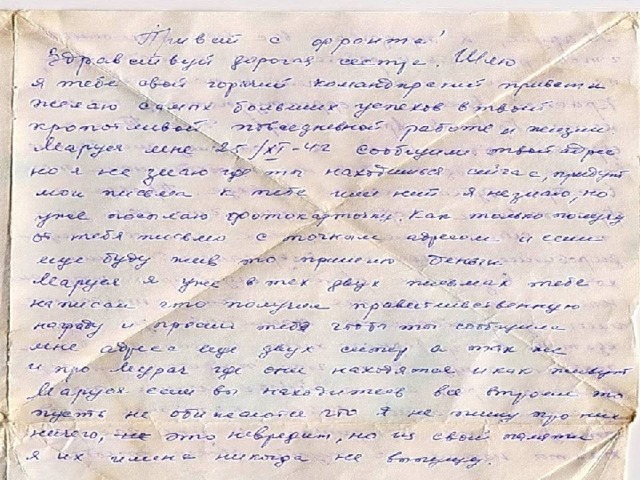 Привет с фронта!
Здравствуй дорогая сестра. Шлю
я тебе свой горячий командирский привет и
желаю самых больших успехов в твоей
кропотливой повседневной работе и жизни
Маруся мне 25/XI-42 сообщили твой адрес
но я не знаю где ты находишься сейчас, придут
мои письма к тебе или нет я не знаю, но
уже посылаю фотокарточку. Как только получу
от тебя письмо с точным адресом и если
еще буду жив то пришлю деньги
Маруся я уже в тех двух письмах тебе
написал что получил правительственную
награду и просил тебя чтобы ты сообщила
мне адреса еще двух сестер а так же
и про где они находятся и как живут
Маруся если вы находитесь все втроем то
пусть не обижаются что я не пишу про них
ничего, не это невредит, но из своей памяти
я их имена никогда не выпущу.